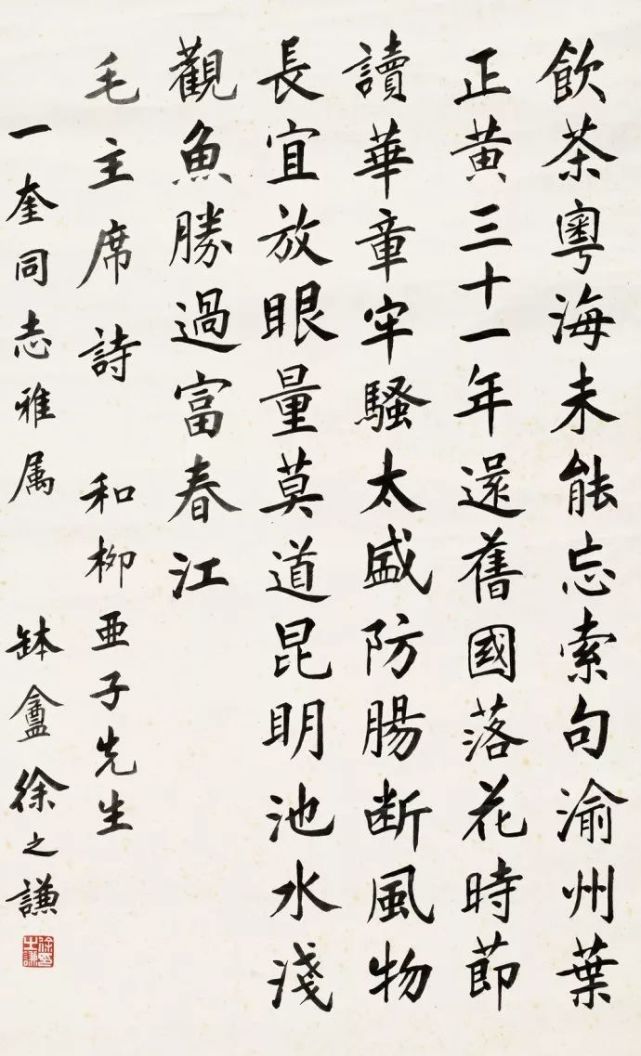 飲茶粵海未能忘索句渝州葉
正黄三十一年還舊國落花時節
讀華章牢騷太盛防腸断風物
長宜放眼量莫道昆明池水淺
觀魚勝過富春江
毛主席詩 和柳亜子先生
一奎同志雅属 鉢盦徐之謙
徐之謙印